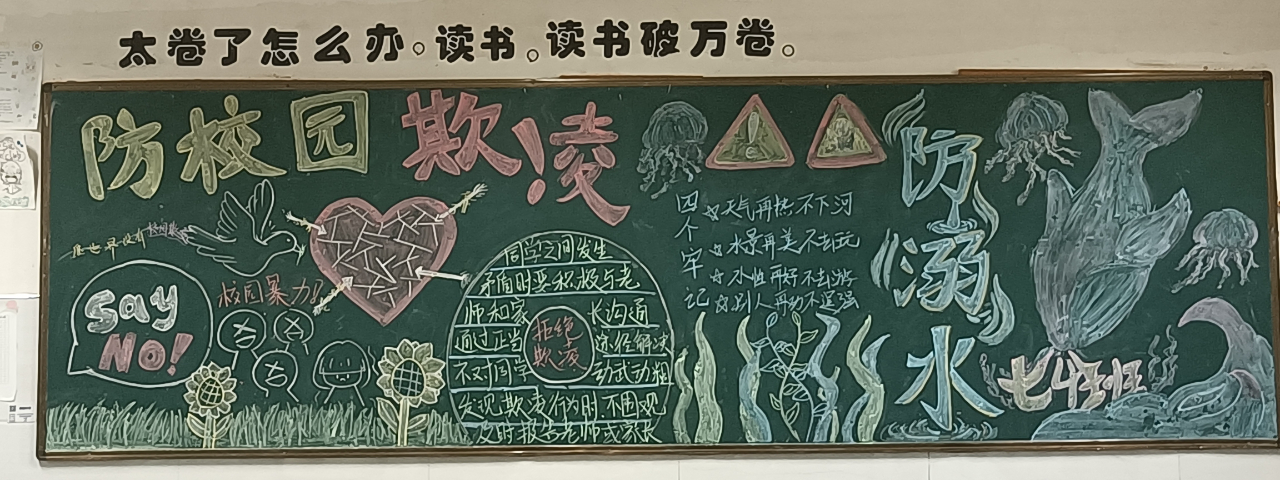 太卷了怎么办。读书。读书破万卷。
防校园欺凌!
愿世界没有校园欺凌
Say
No!
校园暴力!
同学之间发生
矛盾时要积极与老
师和家长沟通
通过正当途径解决
不对同学动武动粗
发现欺凌行为时,不围观
及时报告老师或家长
拒绝
欺凌
四个牢记
天气再热不下河
水景再美不去玩
水性再好不去游
别人再劝不逞强
防溺水
七4班